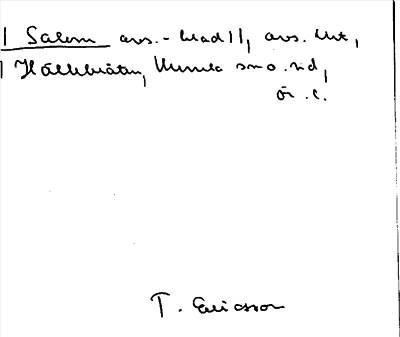 | Salem avs.-blad 11, avs. utk,
| Hällebråten, Kumla sn o. hd,
Ör. l.
T. Ericsson